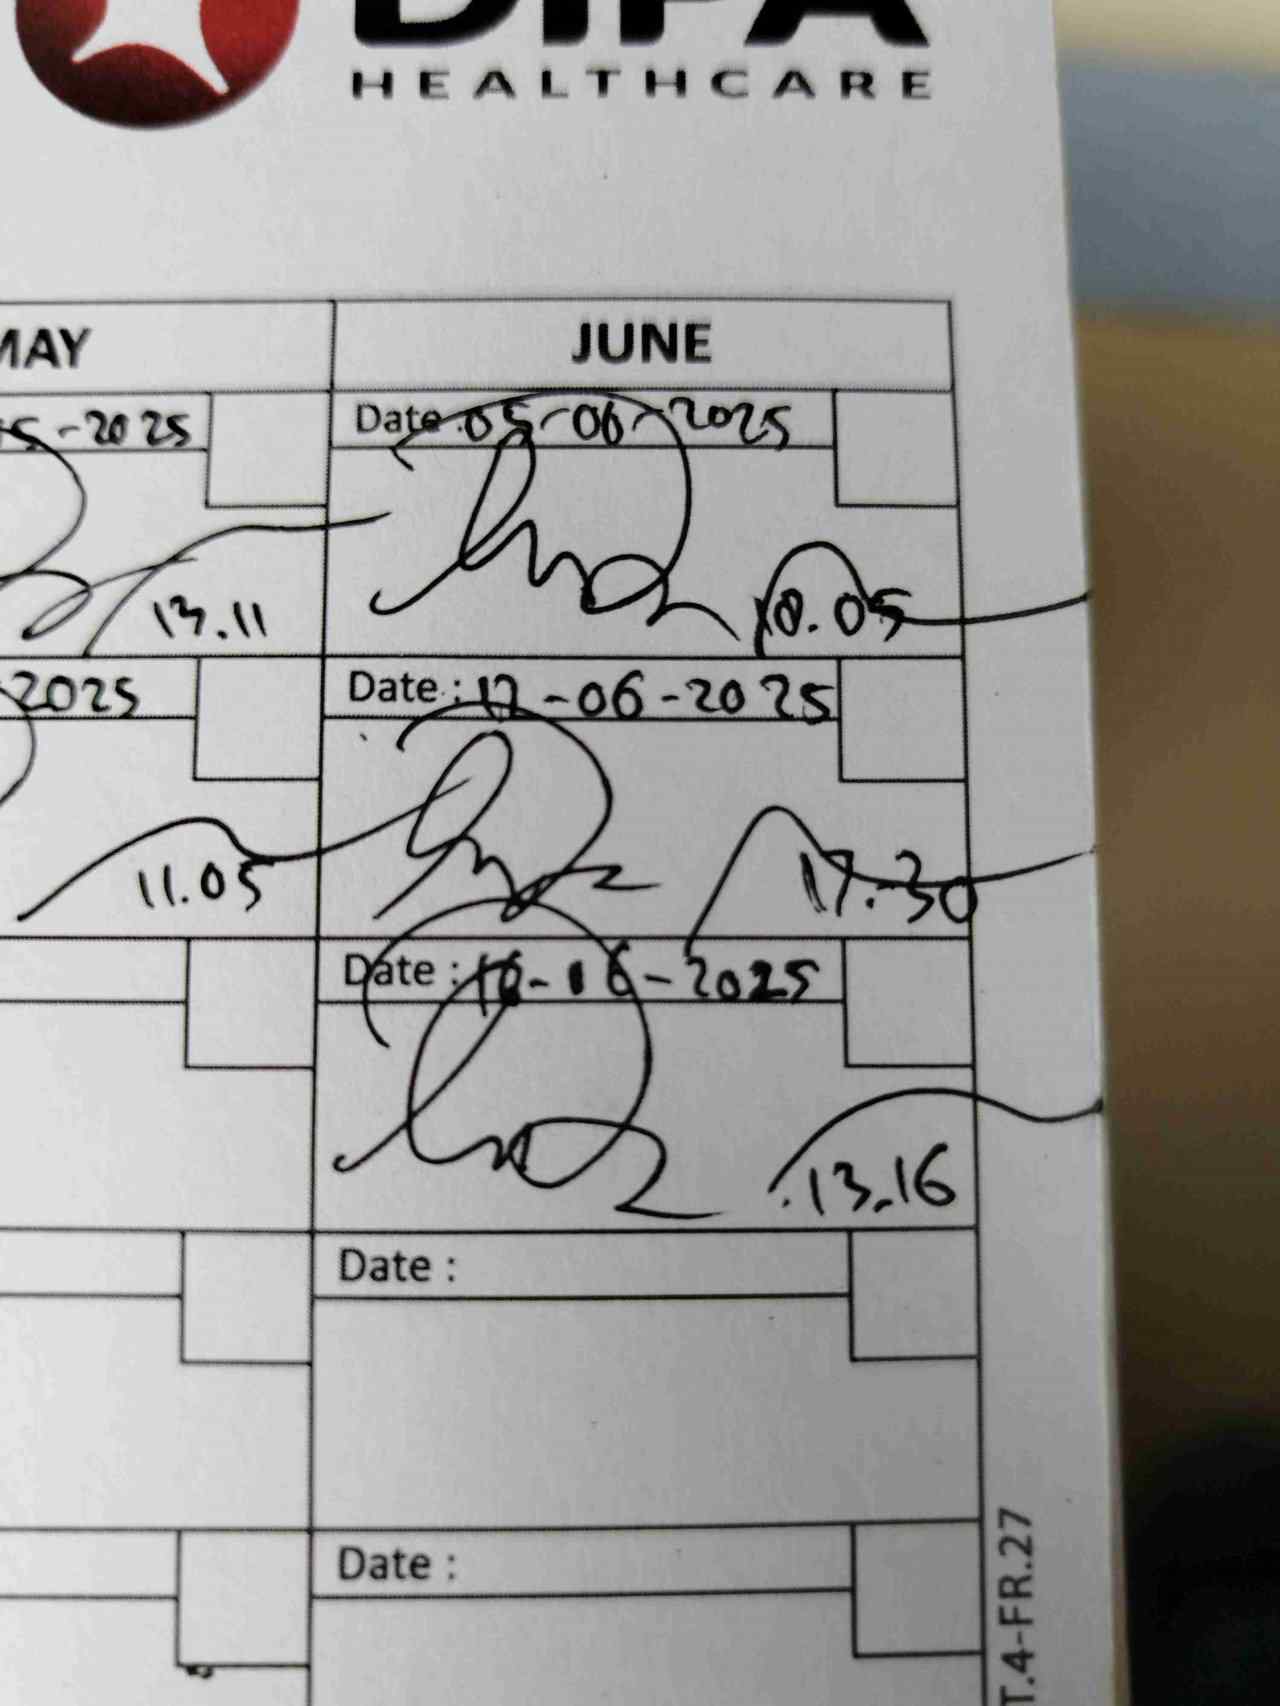 DIPA
HEALTHCARE
MAY
JUNE
5-2025
Date : 05-06-2025
13.11
18.05
2025
Date : 12-06-2025
11.05
17.30
Date : 2025
13.16
Date :
Date :
T.4-FR.27